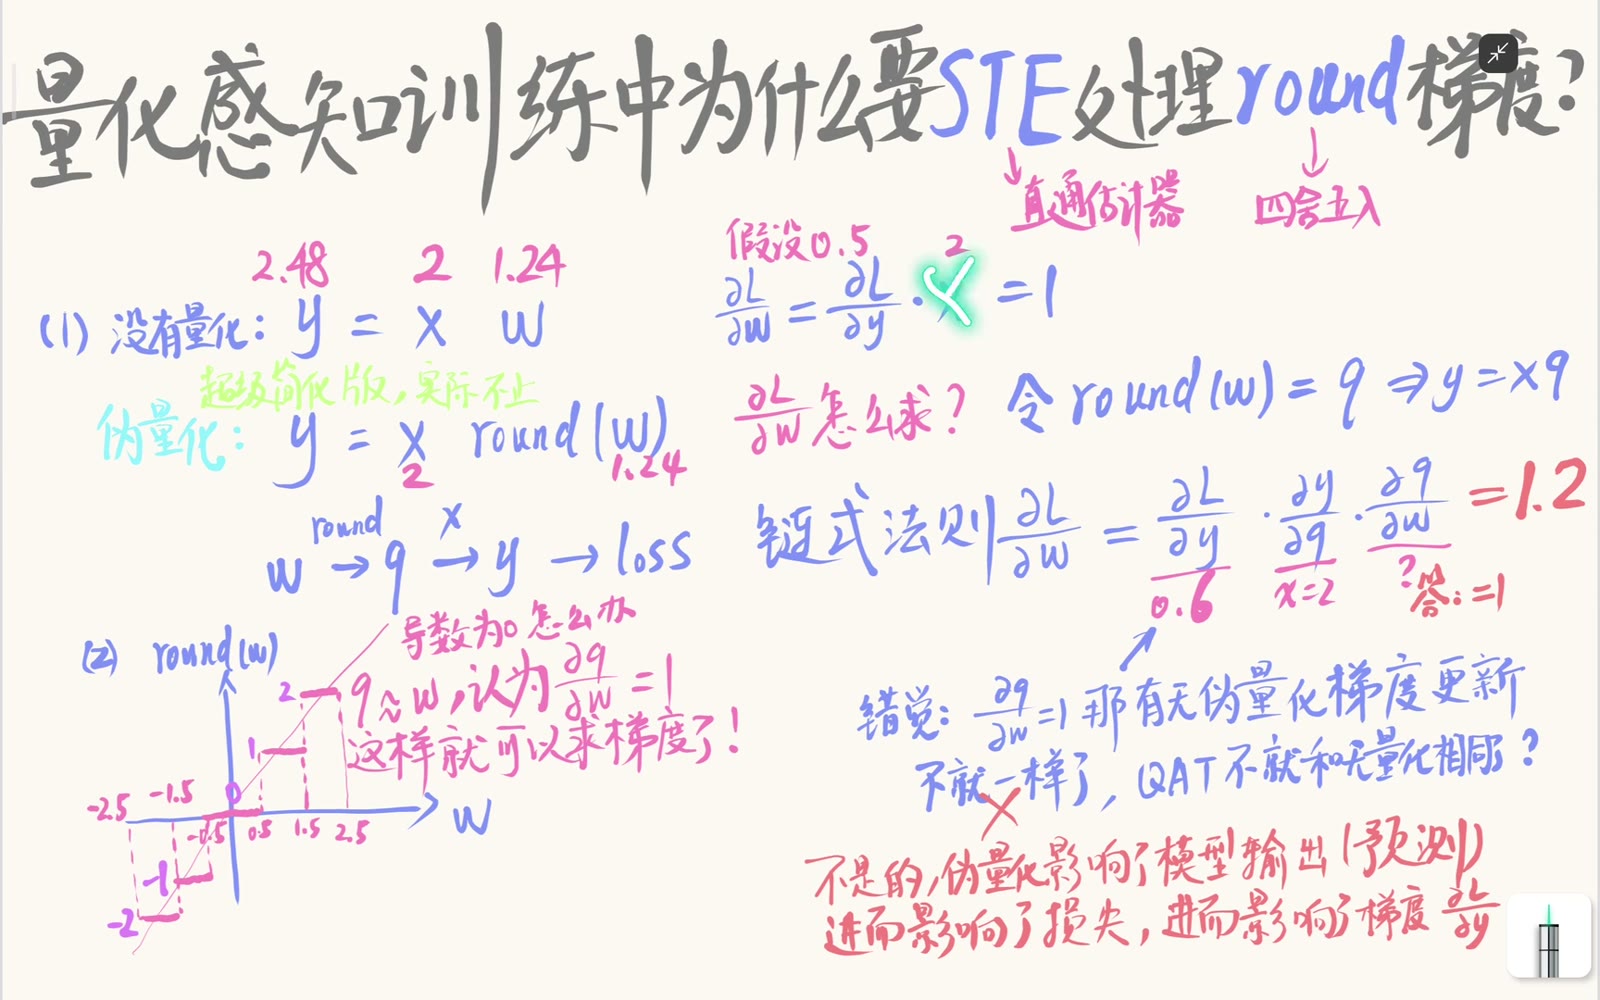 量化感知训练中为什么要STE处理round梯度?
直通估计器
四舍五入
2.48 2 1.24
(1) 没有量化: y = x w
超级简化版,实际不止
伪量化: y = x round(w)
2 1.24
round x
w → q → y → loss
假设0.5 2
∂L/∂w = ∂L/∂y · x = 1
∂L/∂w 怎么求? 令 round(w) = q ⇒ y = xq
链式法则 ∂L/∂w = ∂L/∂y · ∂y/∂q · ∂q/∂w = 1.2
0.6 x=2 ? 答: =1
(2) round(w)
导数为0怎么办
q ≈ w, 认为 ∂q/∂w = 1
这样就可以求梯度了!
2
1
0
-2.5 -1.5 -0.5 0.5 1.5 2.5 w
-1
-2
错觉: ∂q/∂w =1 那有无伪量化梯度更新
不就一样了, QAT不就和无量化相同?
不是的,伪量化影响了模型输出(预测)
进而影响了损失,进而影响了梯度 ∂L/∂y